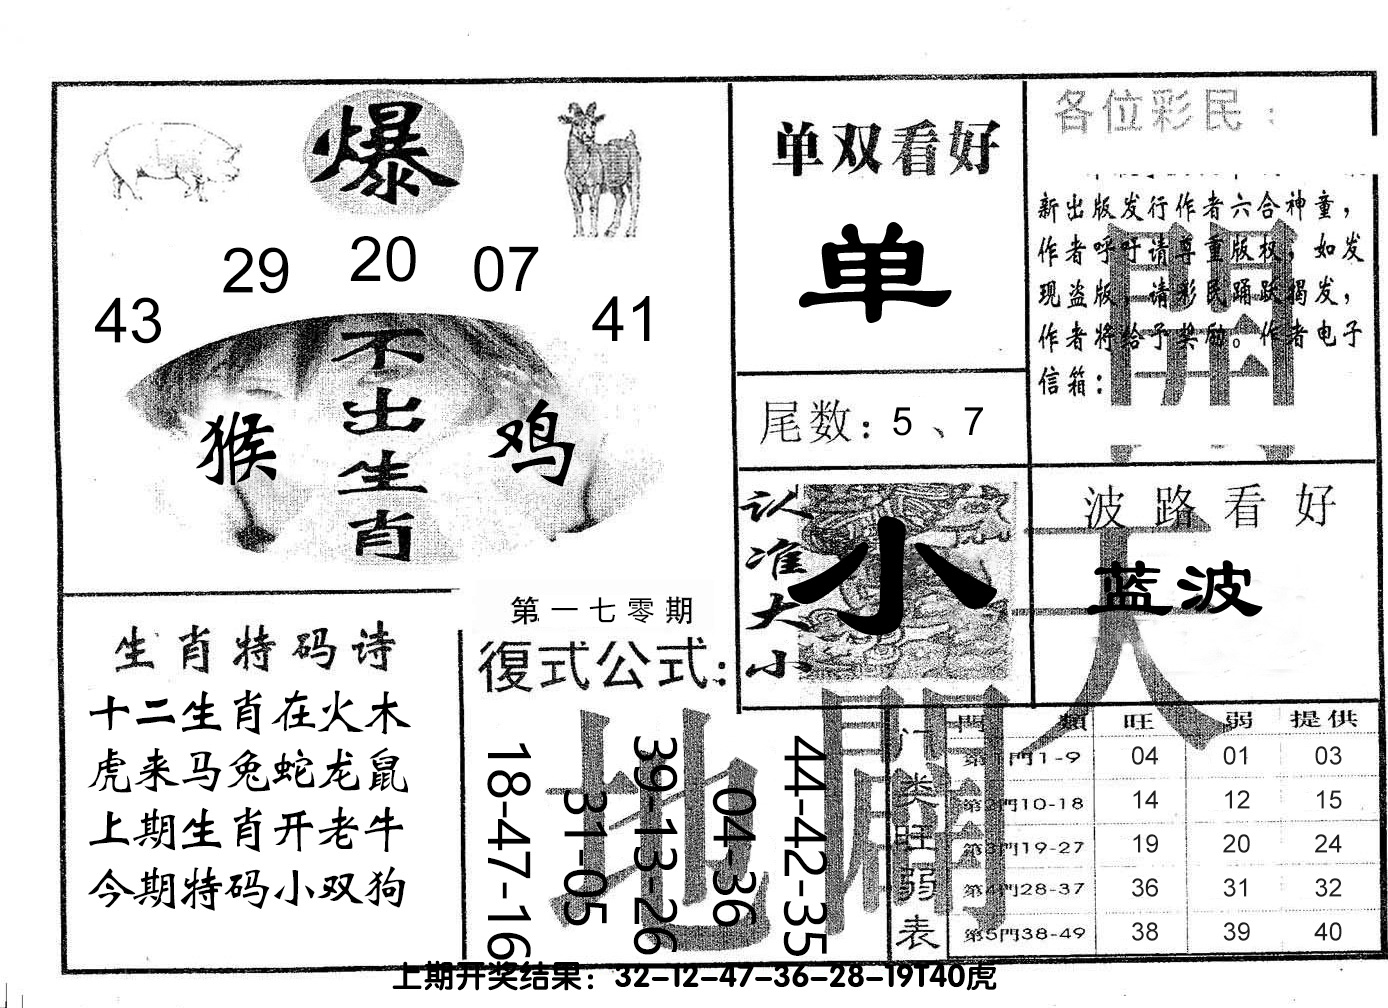 爆
29 20 07
43 41
不出生肖
猴 鸡
单双看好
单
尾数：5、7
各位彩民：
新出版发行作者六合神童，
作者呼吁请尊重版权，如发
现盗版，请彩民踊跃揭发，
作者将给予奖励。作者电子
信箱：
認准大小
小
波路看好
蓝波
生肖特码诗
十二生肖在火木
虎来马兔蛇龙鼠
上期生肖开老牛
今期特码小双狗
第一七零期
復式公式：
18-47-16
31-05
39-13-26
04-36
44-42-35
天
地
開
門类旺弱表
門類 旺 弱 提供
第1門1-9 04 01 03
第2門10-18 14 12 15
第3門19-27 19 20 24
第4門28-37 36 31 32
第5門38-49 38 39 40
上期开奖结果：32-12-47-36-28-19T40虎